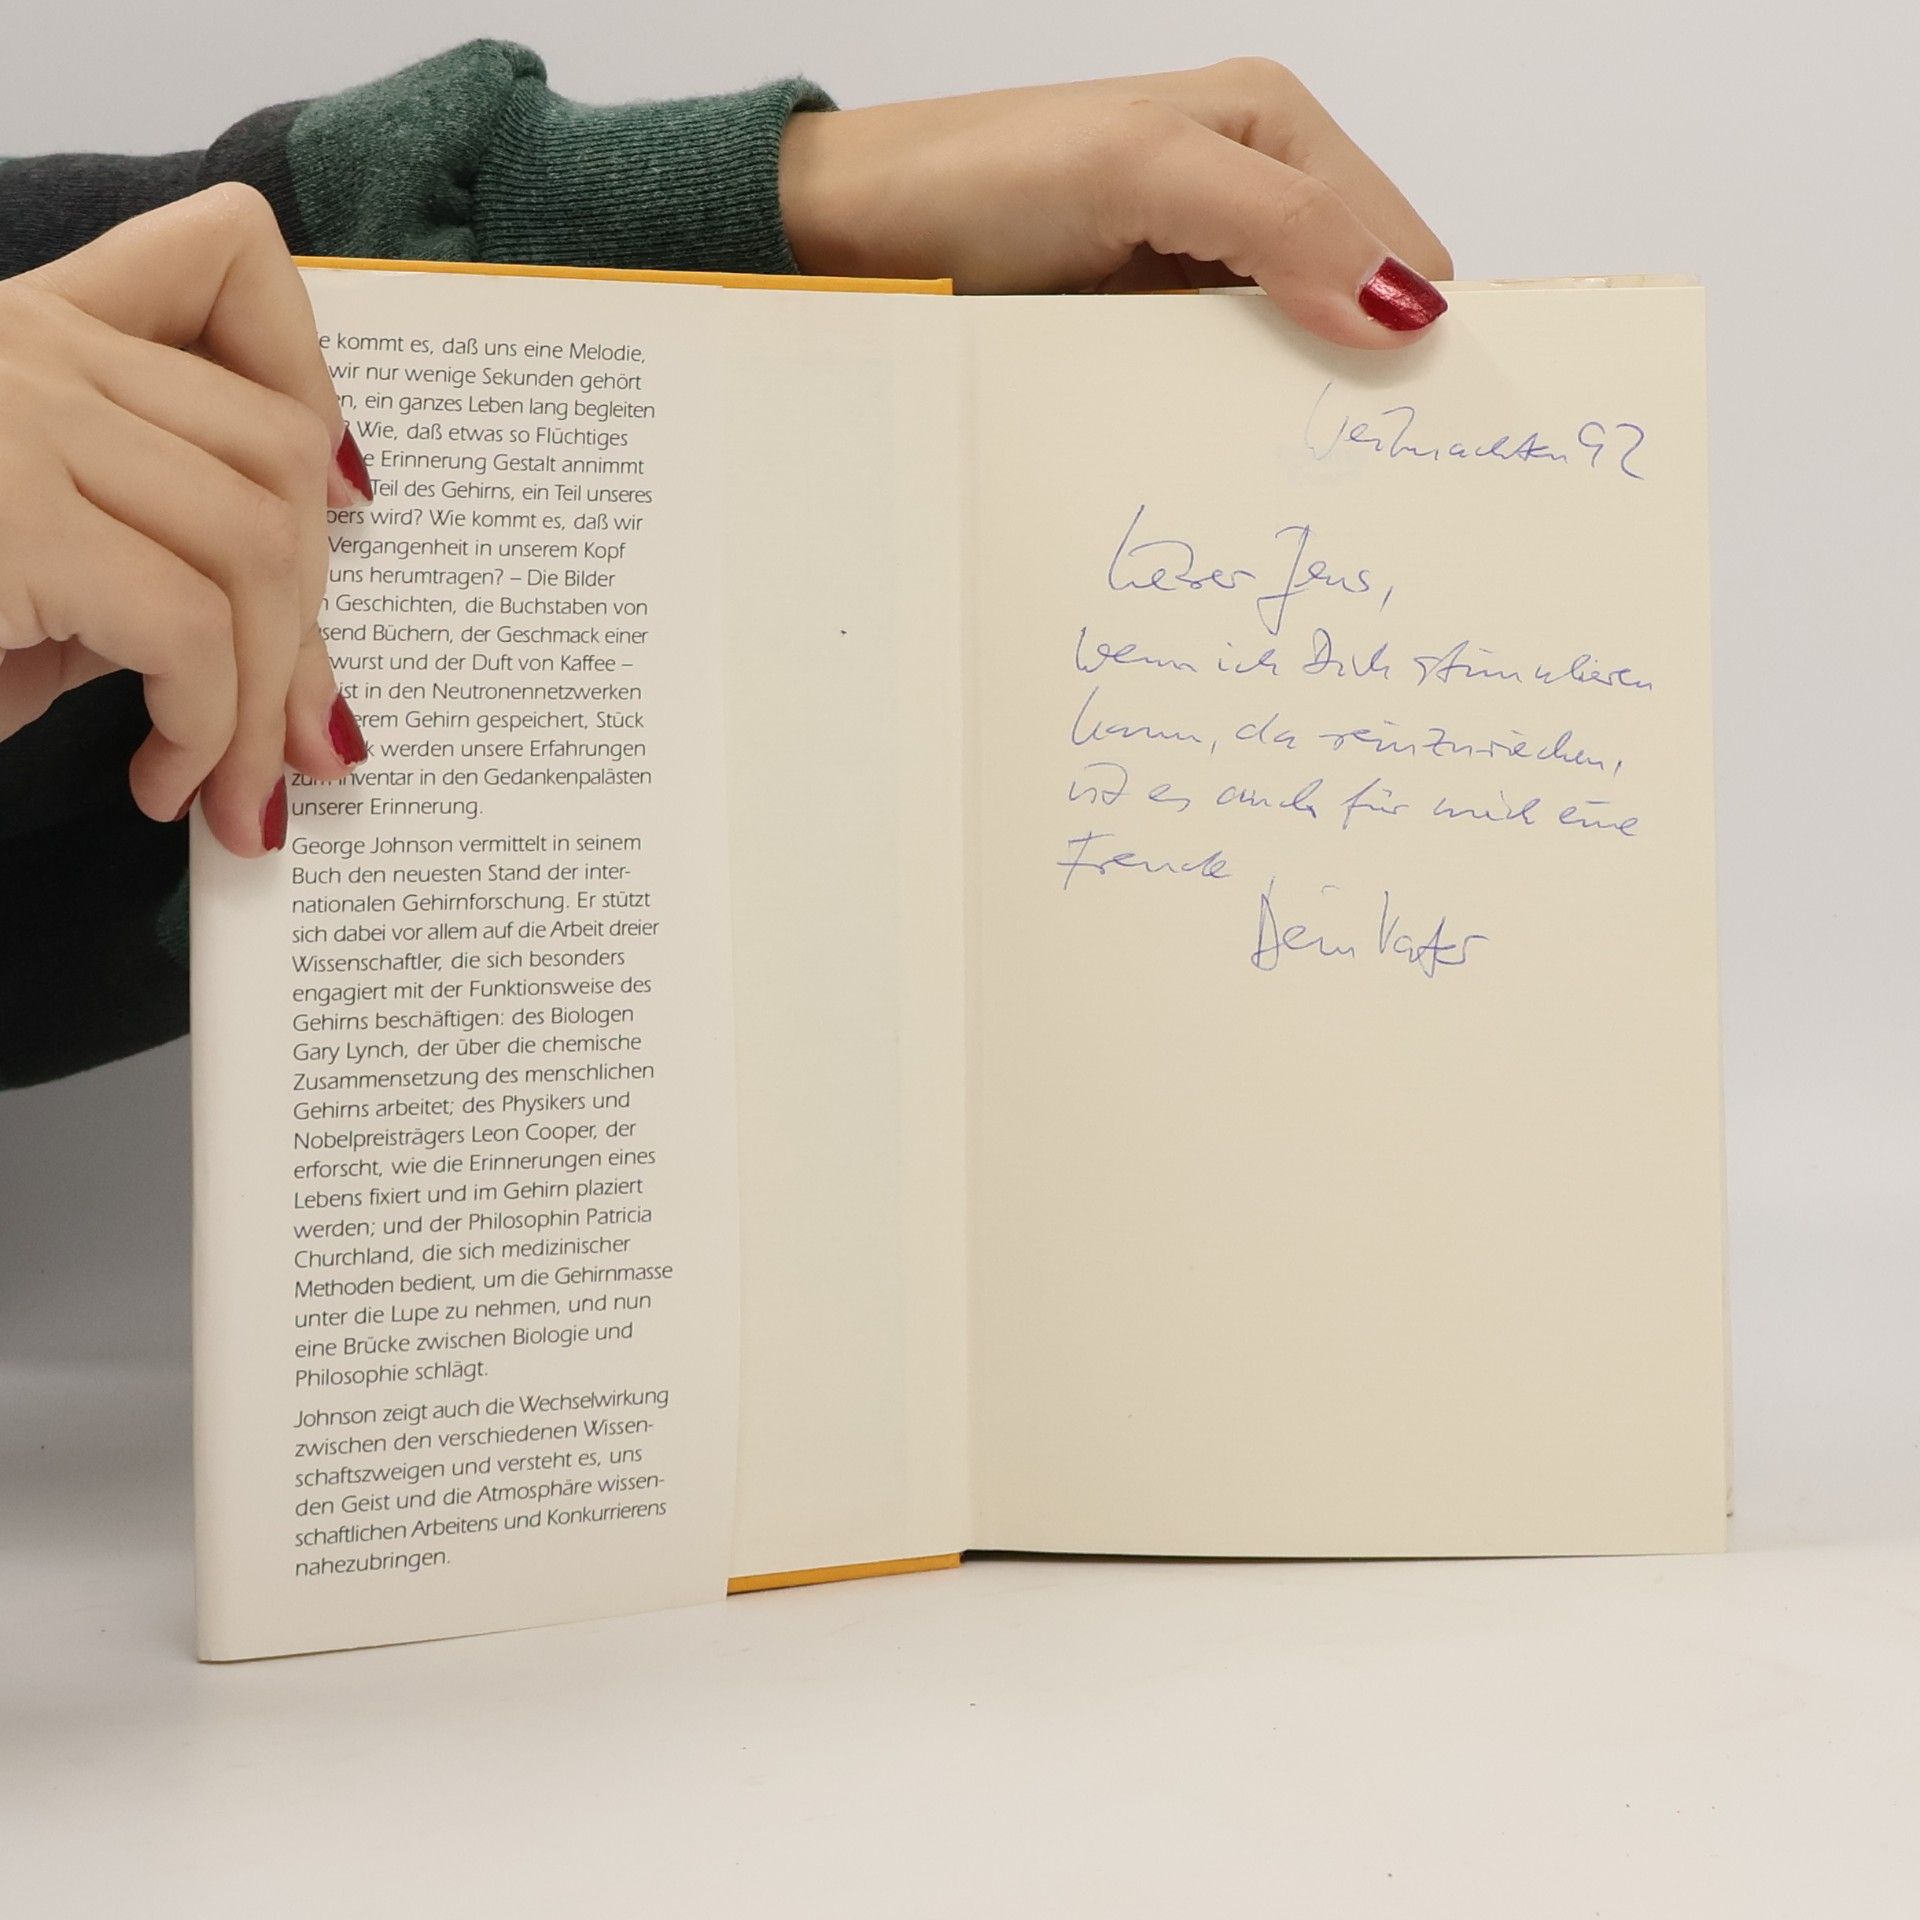 e kommt es, daß uns eine Melodie,
wir nur wenige Sekunden gehört
en, ein ganzes Leben lang begleiten
? Wie, daß etwas so Flüchtiges
e Erinnerung Gestalt annimmt
Teil des Gehirns, ein Teil unseres
pers wird? Wie kommt es, daß wir
Vergangenheit in unserem Kopf
uns herumtragen? – Die Bilder
n Geschichten, die Buchstaben von
send Büchern, der Geschmack einer
wurst und der Duft von Kaffee –
ist in den Neutronennetzwerken
erem Gehirn gespeichert, Stück
k werden unsere Erfahrungen
zum Inventar in den Gedankenpalästen
unserer Erinnerung.
George Johnson vermittelt in seinem
Buch den neuesten Stand der inter-
nationalen Gehirnforschung. Er stützt
sich dabei vor allem auf die Arbeit dreier
Wissenschaftler, die sich besonders
engagiert mit der Funktionsweise des
Gehirns beschäftigen: des Biologen
Gary Lynch, der über die chemische
Zusammensetzung des menschlichen
Gehirns arbeitet; des Physikers und
Nobelpreisträgers Leon Cooper, der
erforscht, wie die Erinnerungen eines
Lebens fixiert und im Gehirn plaziert
werden; und der Philosophin Patricia
Churchland, die sich medizinischer
Methoden bedient, um die Gehirnmasse
unter die Lupe zu nehmen, und nun
eine Brücke zwischen Biologie und
Philosophie schlägt.
Johnson zeigt auch die Wechselwirkung
zwischen den verschiedenen Wissen-
schaftszweigen und versteht es, uns
den Geist und die Atmosphäre wissen-
schaftlichen Arbeitens und Konkurrierens
nahezubringen.
Weihnachten 92
Lieber Jens,
wenn ich Dich stimulieren
kann, da reinzuriechen,
ist es auch für mich eine
Freude
Dein Vater